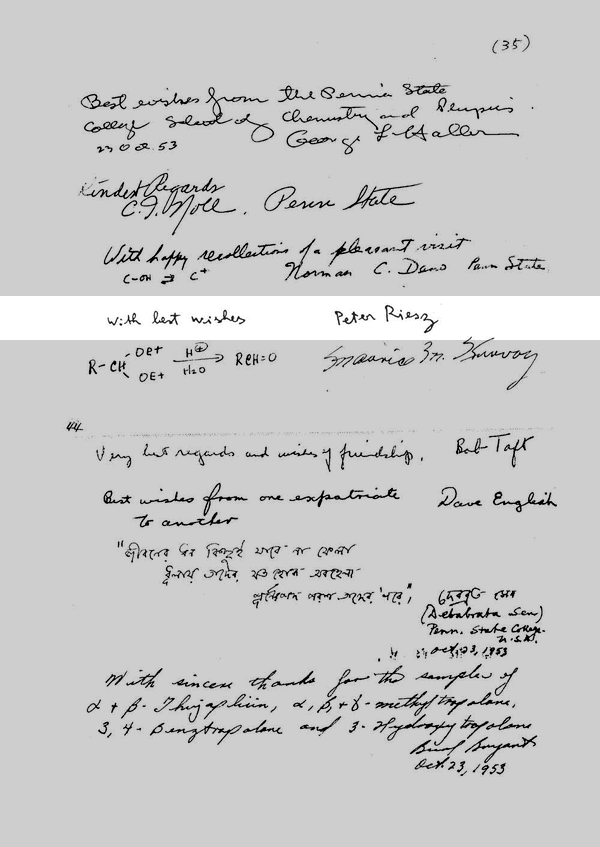 (35)
Best wishes from the Penna State
College School of Chemistry and Physics.
23 Oct. 53 George L Haller
Kindest Regards
C.I. Noll. Penn State
With happy recollections of a pleasant visit
C-OH ⇌ C+ Norman C. Deno Penn State
With best wishes Peter Riesz
R-CH OEt OEt H⊕ H2O → RCH=O
44
Very best regards and wishes of friendship. Bob Taft
Best wishes from one expatriate Dave English
to another
"জীবনের ধন কিছুই যাবে না ফেলা
ধূলায় তাদের যত হোক অবহেলা
পদপরশ তাদের 'পরে",
দেবব্রত সেন
(Debabrata Sen)
Penn. State College.
U.S.A.
Oct 23, 1953
With sincere thanks for the sample of
α + β-Thujaplicin, α, β, + γ-methyl tropolone,
3, 4-Benztropolone and 3-Hydroxytropolone
Bryant
Oct. 23, 1953